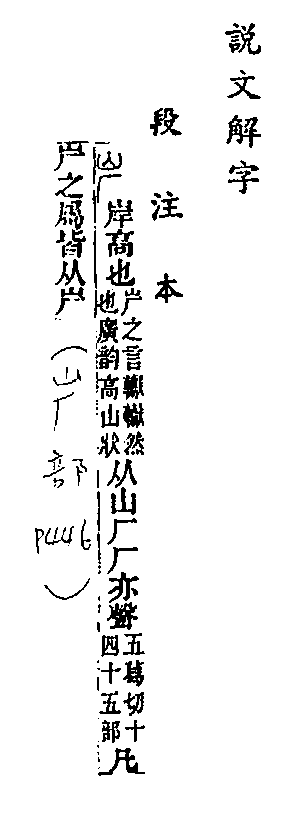 説文解字
段注本
屵
岸高也
屵之言然
也廣韵高山狀
从山厂厂亦聲
五葛切十
四十五部
凡
屵之屬皆从屵
(屵部 P446)